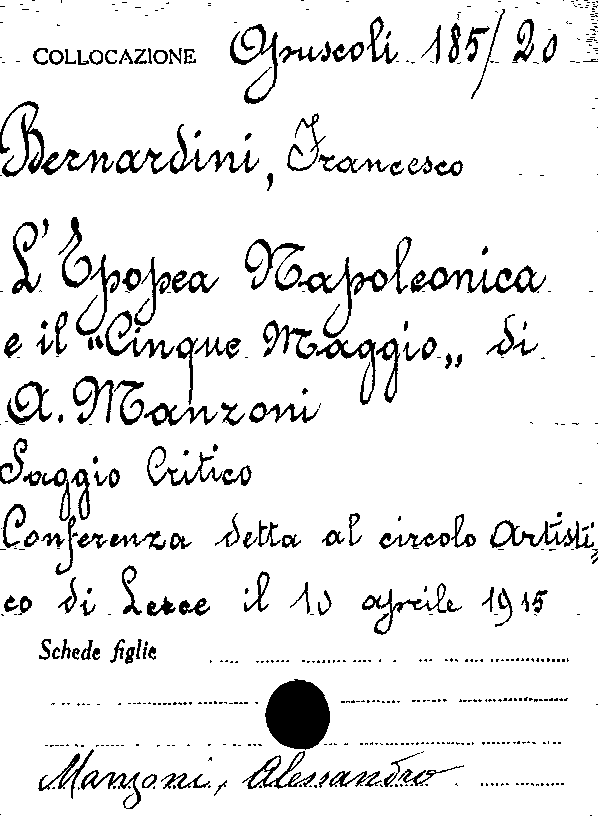 COLLOCAZIONE Opuscoli 185/20
Bernardini, Francesco
L'Epopea Napoleonica
e il "Cinque Maggio„ di
A. Manzoni
Saggio Critico
Conferenza detta al circolo Artisti=
co di Lecce il 10 aprile 1915
Schede figlie
Manzoni, Alessandro